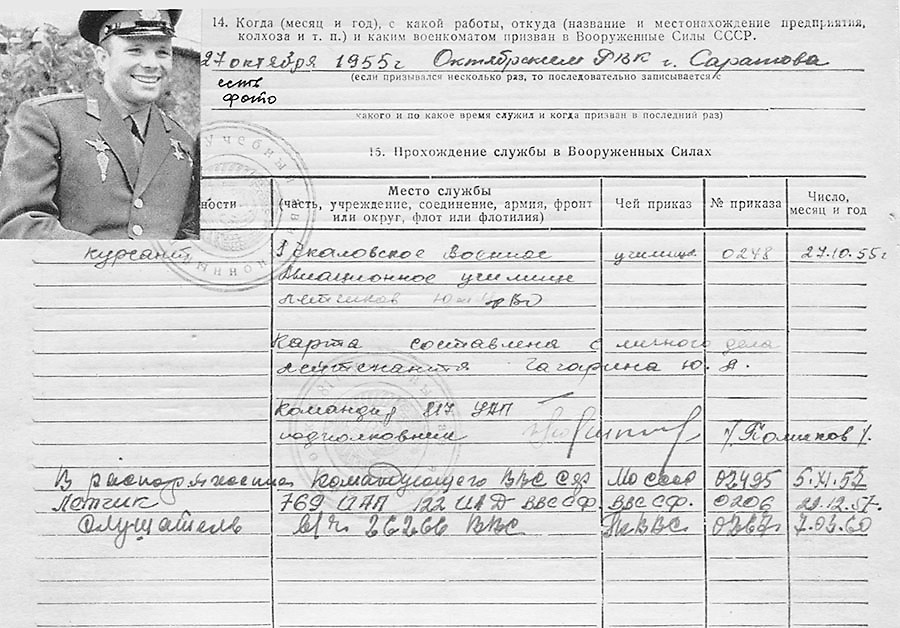 14. Когда (месяц и год), с какой работы, откуда (название и местонахождение предприятия,
колхоза и т. п.) и каким военкоматом призван в Вооруженные Силы СССР.
27 октября 1955 г Октябрьским РВК г. Саратова
(если призывался несколько раз, то последовательно записывается с
есть
фото
какого и по какое время служил и когда призван в последний раз)
15. Прохождение службы в Вооруженных Силах
ности
Место службы
(часть, учреждение, соединение, армия, фронт
или округ, флот или флотилия)
Чей приказ
№ приказа
Число,
месяц и год
курсант Чкаловское Военное училище 0248 27.10.55 г
Авиационное училище
летчиков
Карта составлена с личного дела
лейтенанта Гагарина Ю. А.
Командир УАП
подполковник /Полшков/.
В распоряжении Командующего ВВС СФ Мо ссср 02495 5.XI.57
Летчик 769 ИАП 122 ИАД ВВС СФ. ВВС СФ. 0206 29.12.57.
Слушатель в/ч. 26266 ВВС ВВС. 0267. 7.03.60